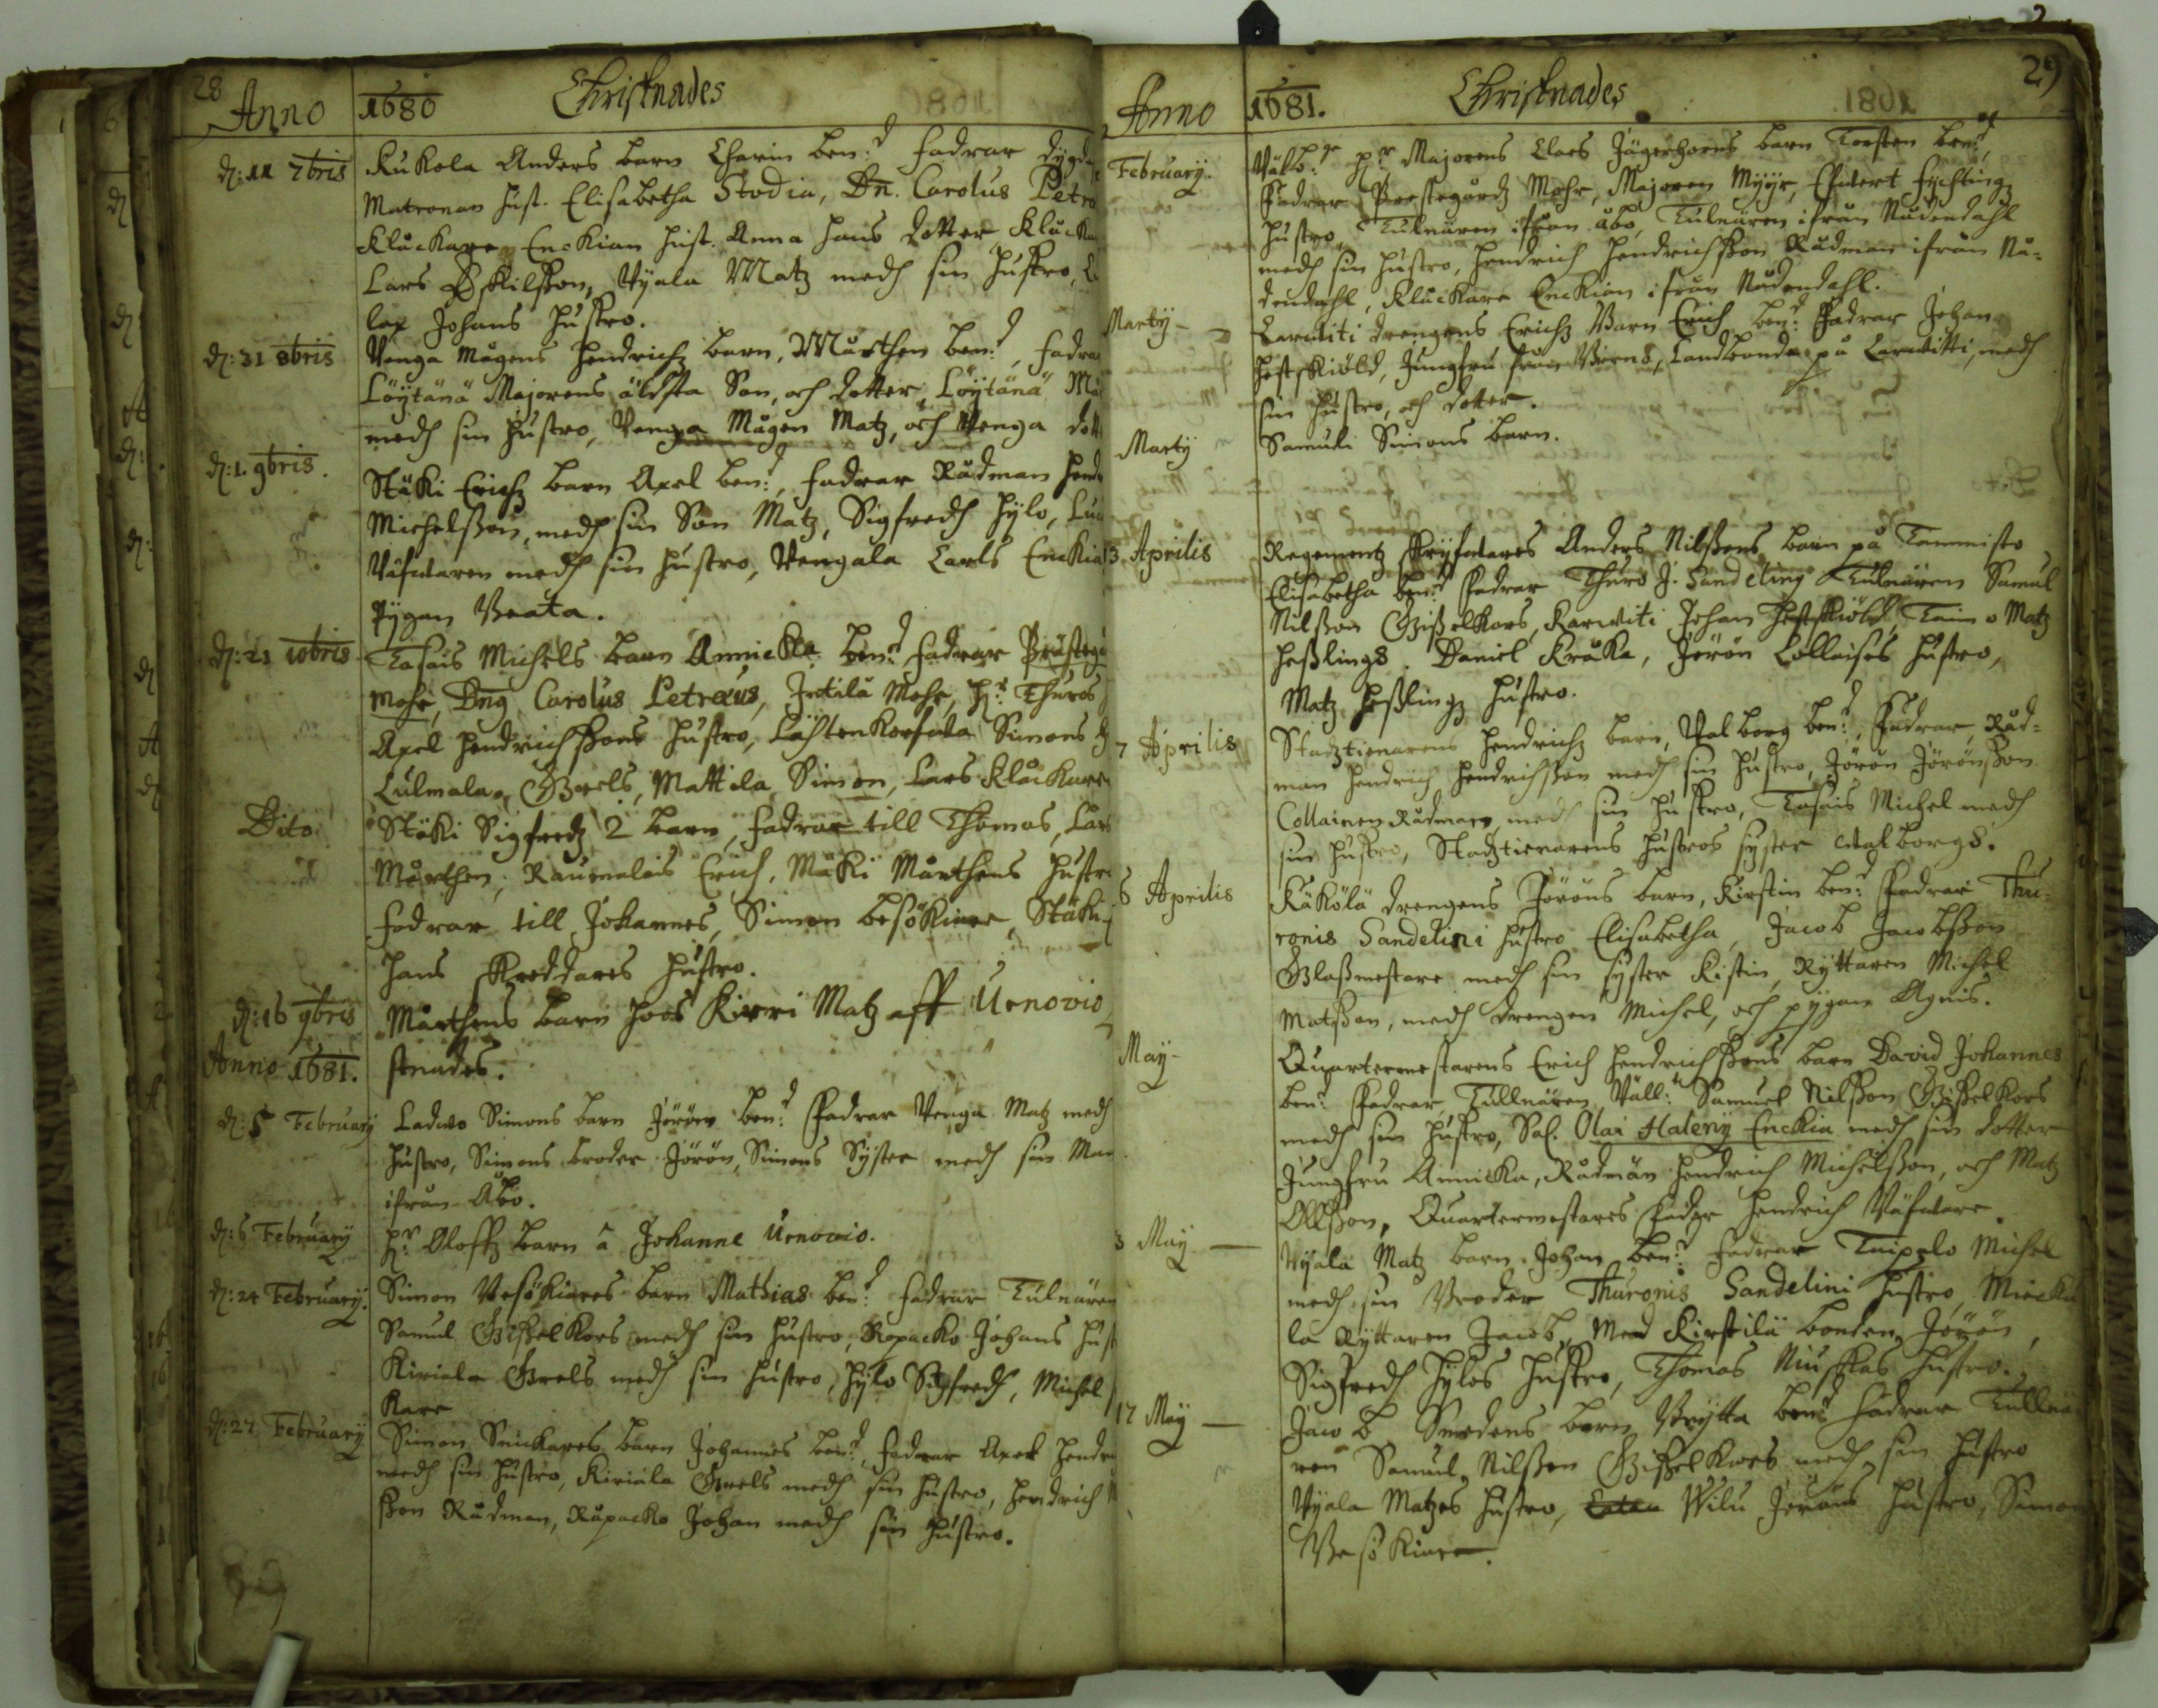 28
Anno 1680 Christnades
d: 11 7bris Kukola Anders barn Charin ben:d fadrar dygde
Matronan hust. Elisabetha Stodia, Dn. Carolus Petra
Kluckare Enckian hust. Anna hans dotter Klucka
Lars Eskilsson, Wyala Matz medh sin hustro,
lax Johans hustro.
d: 31 8bris Wenga Mågens Hendrichz barn, Mårthen ben:d, fadra
Löytänä Majorens äldsta Son, och dotter, Löytänä Må
medh sin hustro, Wenga Mågen Matz, och Wenga dott
d: 1. 9bris. Stäki Erichz barn Axel ben:d, fadrar Rådman Hend
Michelsson, medh sin Son Matz, Sigfredh Hylo,
Wäfwaren medh sin hustro, Wengala Carls Enckia
Pygan Beata.
d: 21 10bris Tasais Michels barn Annicka ben:d fadrar Prästegå
Mohr, Dng Carolus Petræus, Jutila Mohr, Hr. Thuros
Axel Hendrichssons hustro, Simons
Culmala, Grels, Mattila Simon, Lars Kluckare
Dito Stäki Sigfredz 2 barn, fadrar till Thomas, Lars
Mårthen, Raumalais Erich, Mäki Mårthens hustro
fadrar till Johannes, Simon besökiare, Stäki
hans skreddares hustro.
d: 16 9bris Mårthens barn hoos Kirri Matz aff Urnovio
stnades.
Anno 1681.
d: 5 February Ladwo Simons barn Jörön ben:d fadrar Wenga Matz medh
hustro, Simons broder Jörön, Simons Syster medh sin Man
ifrån Åbo.
d: 6 February Hr. Oloffz barn â Johanne Urnovio.
d: 24 February. Simon Besökiares barn Mathias ben:d fadrar Tulnären
Samul Gisselkors medh sin hustro, Ropacko Johans hust
Kiriala Grels medh sin hustro, Hylo Sigfredh, Michel
kare
d: 27 February. Simon Snickares barn Johannes ben:d, fadrar Axel Hendr
medh sin hustro, Kiriala Grels medh sin hustro, Hendrich
sson Rådman, Råpacko Johan medh sin hustro.
29
Anno 1681. Christnades
February. Wälb:ge Hr Majorens Claes Jägerhorns barn Torsten ben:d,
fadrar Prestegårdz Mohr, Majoren Myyr, Ewert Fychtingz
hustro, Tulnären ifrån Åbo, Tulnären ifrån Nådendahl
medh sin hustro, Hendrich Hendrichsson Rådman ifrån Nå-
dendahl, Kluckare Enckian ifrån Nådendahl.
Martÿ Carwiti Drengens Erichz Barn Erich ben:d fadrar Johan
Hestskiöld, Jungfru från Wiens, Landbonde på Carwitti, medh
sin hustro, och dotter.
Martÿ Samuli Simons barn.
3 Aprilis Regementz Skrifwares Anders Nilssons barn på Tammisto
Elisabetha ben:d fadrar Thuro J. Sandeliny Tulnären Samul
Nilsson Gisselkors, Karwiti Johan Hestskiöld, Taimo Matz
Hesslings. Daniel Kråka, Jörön Collaises hustro,
Matz Hesslingz hustro.
7 Aprilis Stadztienarens Hendrichz barn, Walborg ben:d, fadrar, Råd-
man Hendrich Hendrichsson medh sin hustro, Jörön Jörönsson
Collainen Rådman, medh sin hustro, Tasais Michel medh
sin hustro, Stadztienarens hustros syster Walborgs.
6 Aprilis Käkölä Drengens Jöröns barn, Kirstin ben:d fadrar Thu-
ronis Sandelini hustro Elisabetha, Jacob Jacobsson
Glassmestare medh sin syster Kistin, Ryttaren Michel
Matsson, medh drengen Michel, och pygan Agnis.
May Quartermestarens Erich Hendrichssons barn David Johannes
ben:d fadrar Tullnären Wäll: Samuel Nilsson Gisselkors
medh sin hustro, Sal. Olai Haleny Enckia medh sin dotter
Jungfru Annicka, Rådman Hendrich Michelsson, och Matz
Ollsson, Quartermestares fader Hendrich Wäfware.
3 May Wyala Matz barn Johan ben:d fadrar Taipalo Michel
medh sin Broder Thuronis Sandelini hustro, Miecku
la Ryttaren Jacob, Med Kirstilä bonden Jörön,
Sigfredh Hylos hustro, Thomas Niuskas hustro.
17 May Jacob Smedens barn Brytta ben:d fadrar Tullnä
ren Samul Nilsson Gisselkors medh sin hustro
Wyala Matzes hustro, Wilu Jöröns hustro, Simon
Besökiare.